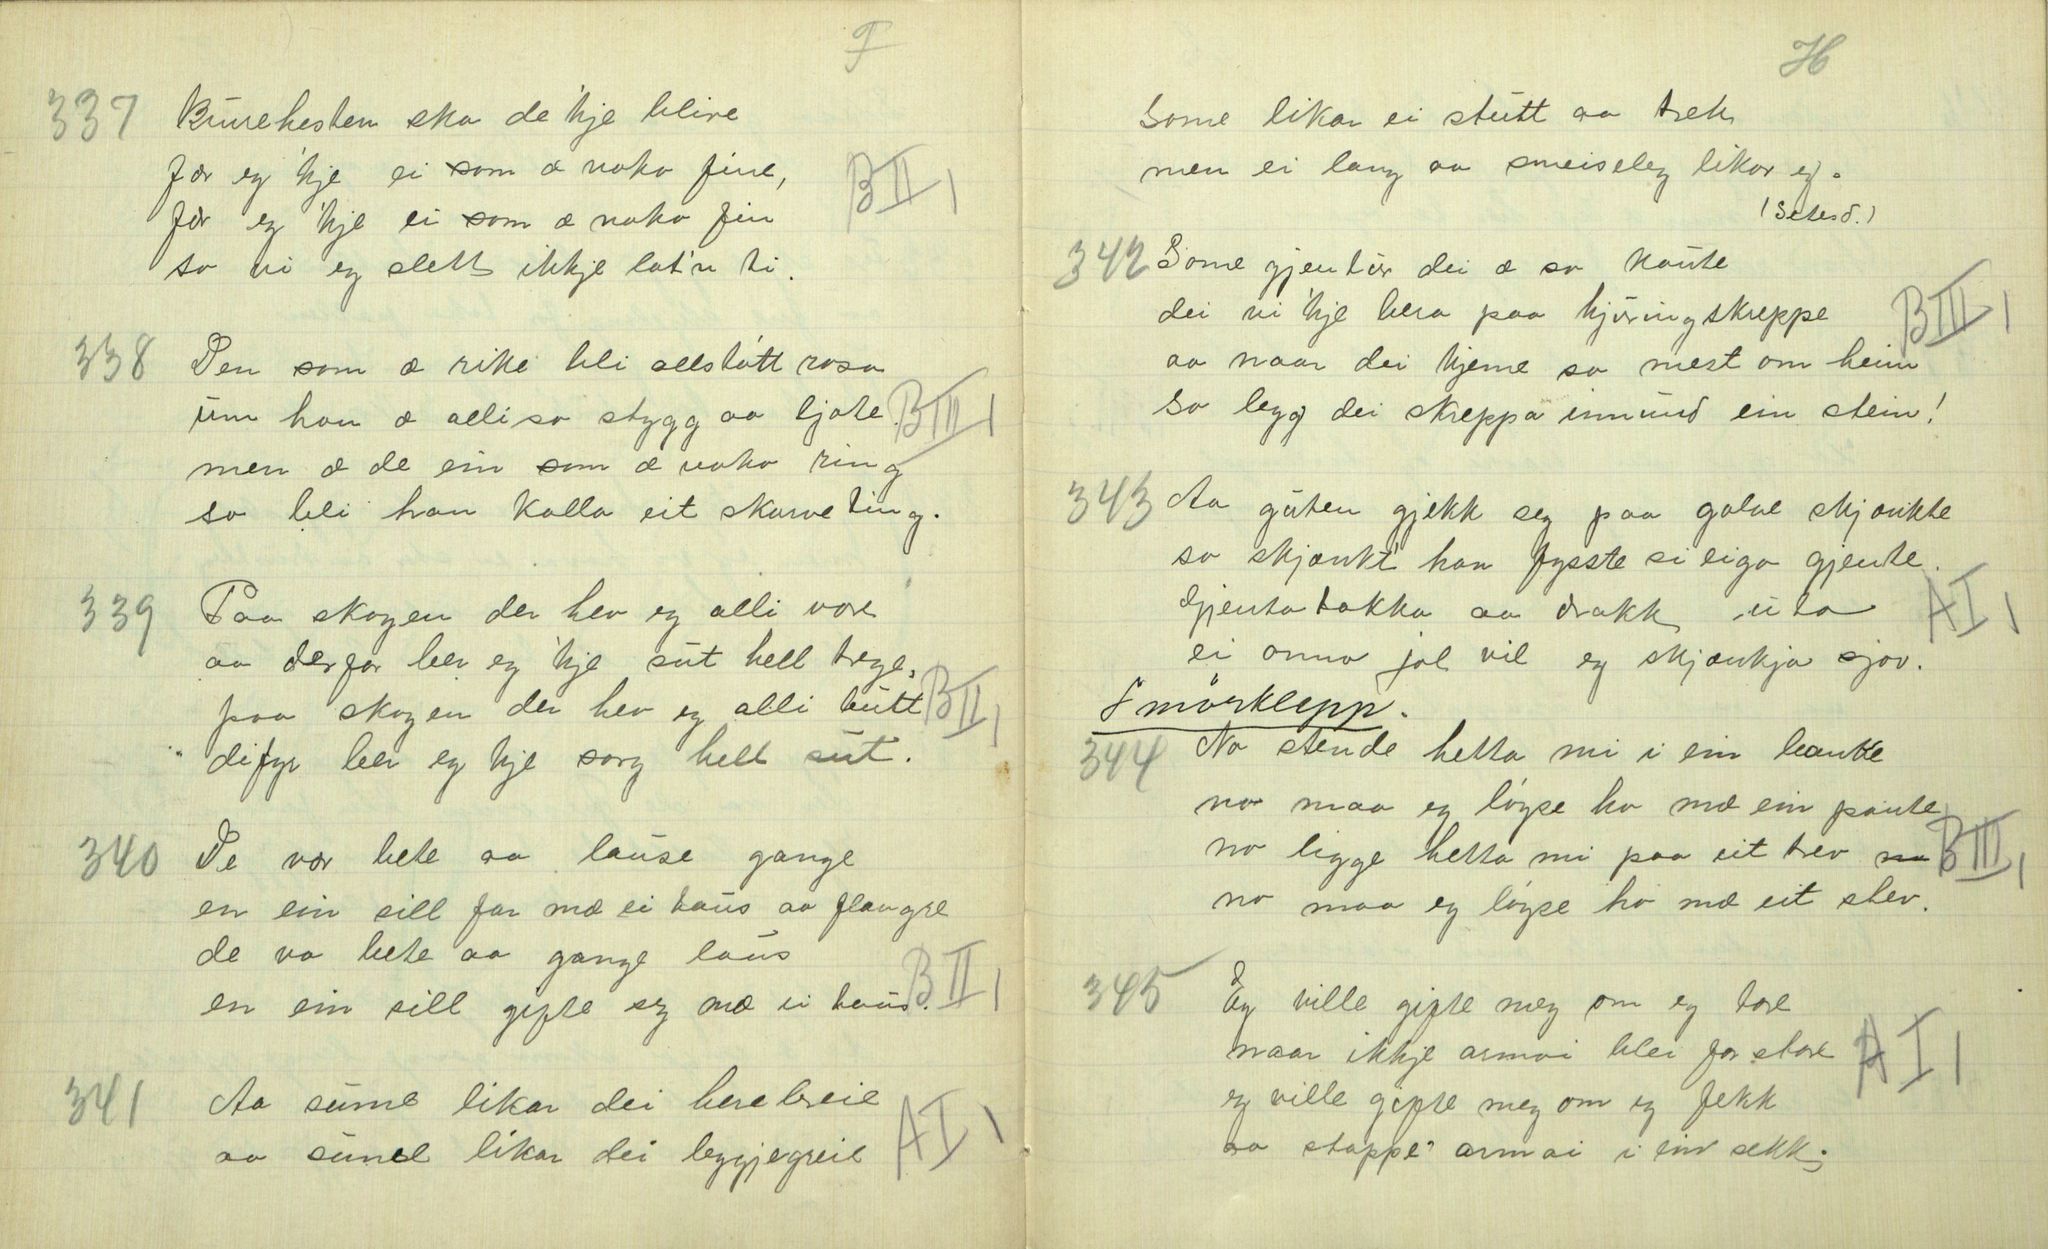 F
337 Brurehesten ska de 'kje blive
før eg 'kje ei som æ noko fine,
før eg 'kje ei som æ noko fin
so vi eg slett ikkje lat'n ti.
BII 1
338 Den som æ rike bli allstøtt rosa
um han æ alli so stygg aa ljote
men æ de ein som æ noko ring
so bli han kalla eit skarve ting.
BIII 1
339 Paa skogen der hev eg alli vore
aa derfor ber eg 'kje sut hell trege,
paa skogen der hev eg alli butt
difyr ber eg 'kje sorg hell sut.
BII 1
340 De vor bete aa lause gange
en ein sill far mæ ei taus aa flangre
de va bete aa gange laus
en ein sill gifte seg mæ ei taus.
BII 1
341 Aa sume likar dei herebreie
aa sume likar dei leggjegreie
AI 1
H
Some likar ei stutt aa trek
men ei lang aa smeiseleg likar eg.
(Setesd.)
342 Some gjentur dei æ so kaute
dei vi 'kje bera paa kjøringskreppe
aa naar dei kjeme so mest om heim
so legg dei skreppa innund ein stein!
BIII 1
343 Aa guten gjekk seg paa golve skjænkte
so skjænkt' han fysste si eiga gjente.
Gjenta takka aa drakk uta
ei onno jol vil eg skjænkja sjøv.
AI 1
Smørklepp.
344 No stende hetta mi i ein bankke
no maa eg løyse ho mæ ein pante
no ligge hetta mi paa eit trev
no maa eg løyse ho mæ eit stev.
BIII 1
345 Eg ville gifte meg om eg tore
naar ikkje armoi blei for store
eg ville gifte meg om eg fekk
aa stappe armoi i ein sekk;
AI 1